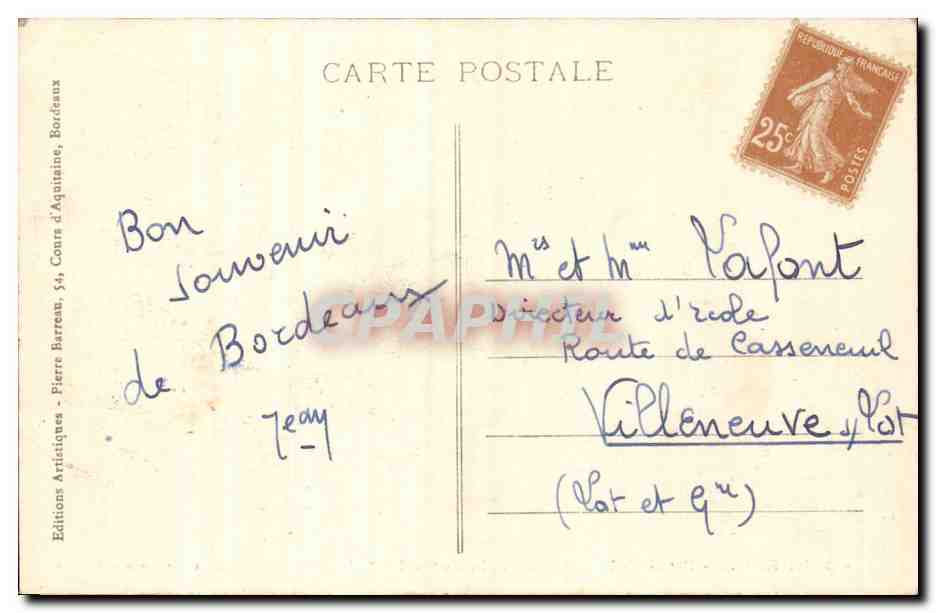 CARTE POSTALE
REPUBLIQUE FRANÇAISE
25c
POSTES
Editions Artistiques - Pierre Barreau, 54, Cours d'Aquitaine, Bordeaux
Bon
souvenir
de Bordeaux
Jean
CPAPHIL
Mrs et Mme Lafont
Directeur d'école
Route de Casseneuil
Villeneuve s/ Lot
(Lot et Gne)